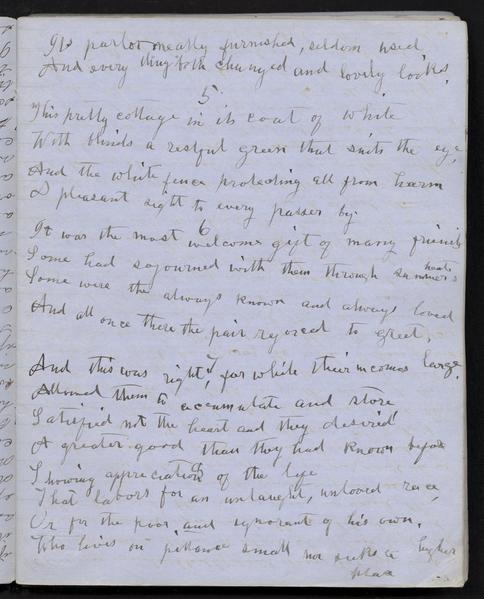 Its parlor neatly furnished, seldom used
And every thing both changed and lovely looks.
5
This pretty cottage in its coat of white
With blinds a restful green that suits the eye,
And the white fence protecting all from harm
A pleasant sight to every passer by.
6
It was the most welcome gift of many friends
Some had sojourned with them through summer's heats
Some were the always known and always loved
And all once there the pair rejoiced to greet.
7
And this was right, for while their incomes large
Allowed them to accumulate and store
Satisfied not the heart and they desired
A greater good than they had known before
8
Showing appreciation of the life
That labors for an untaught, unloved race,
Or for the poor and ignorant of his own,
Who lives on pittance small nor seeks a higher
place